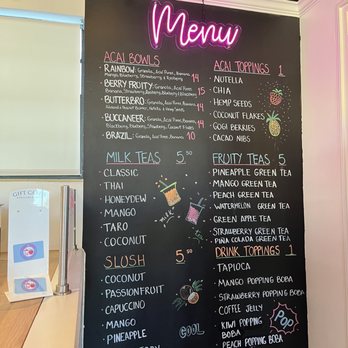 Menu
ACAI BOWLS
• RAINBOW: Granola, Acai Puree, Banana
Mango, Blueberry, Strawberry 14
• BERRY FRUITY: Granola, Acai Puree,
Banana, Strawberry, Raspberry, Blueberry 15
• BUTTERBRO: Granola, Acai Puree, Banana
14
• BUCCANEER: Granola, Acai Puree, Banana
Blackberry, Blueberry, Strawberry, Coconut Flakes 14
• BRAZIL: Granola, Acai Puree, Banana 10
MILK TEAS 5.50
• CLASSIC
• THAI
• HONEYDEW
• MANGO
• TARO
• COCONUT
MILK
SLUSH 5.50
• COCONUT
• PASSIONFRUIT
• CAPPUCCINO
• MANGO
• PINEAPPLE
COOL
ACAI TOPPINGS 1
• NUTELLA
• CHIA
• HEMP SEEDS
• COCONUT FLAKES
• GOGI BERRIES
• CACAO NIBS
FRUITY TEAS 5
• PINEAPPLE GREEN TEA
• MANGO GREEN TEA
• PEACH GREEN TEA
• WATERMELON GREEN TEA
• GREEN APPLE TEA
• STRAWBERRY GREEN TEA
• PINA COLADA GREEN TEA
DRINK TOPPINGS 1
• TAPIOCA
• MANGO POPPING BOBA
• STRAWBERRY POPPING BOBA
• COFFEE JELLY
• KIWI POPPING
BOBA
• PEACH POPPING BOBA
POP